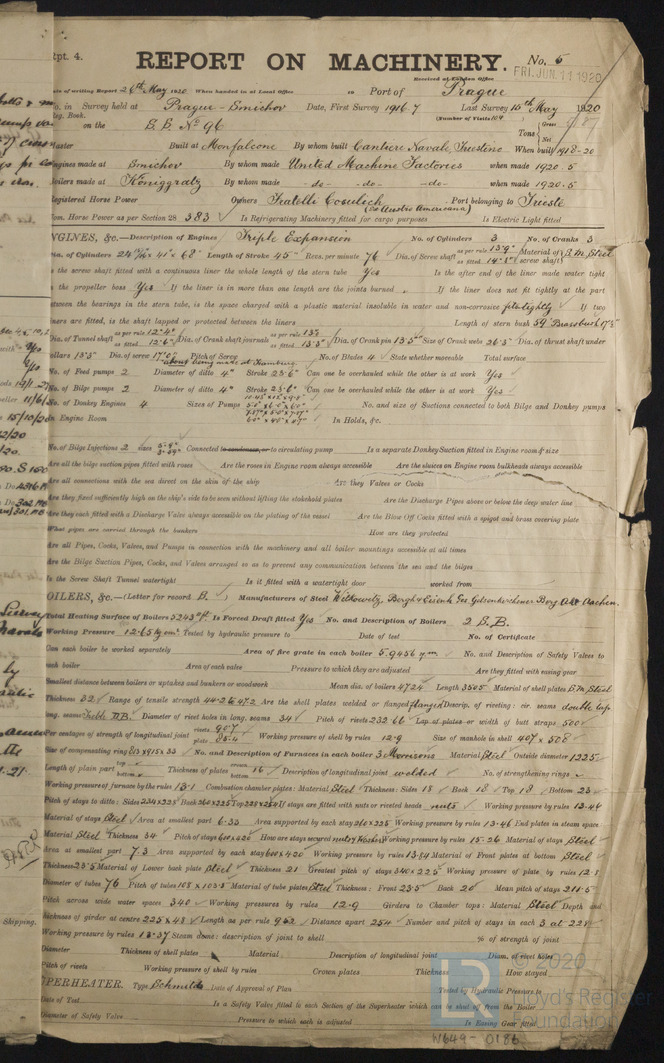 Rpt. 4.
REPORT ON MACHINERY.
No. 5
Received at London Office
FRI. JUN. 11 1920
Date of writing Report 26th May 1920 When handed in at Local Office 19 Port of Prague
No. in Survey held at Prague-Smichov Date, First Survey 1916.7 Last Survey 15th May 1920
Reg. Book. (Number of Visits 104)
on the S.S. No 96 Tons Gross Net
Master Built at Monfalcone By whom built Cantiere Navale Triestino When built 1918-20
Engines made at Smichov By whom made United Machine Factories when made 1920.5
Boilers made at Königgratz By whom made -do- -do- -do- when made 1920.5
Registered Horse Power Owners Fratelli Cosulich (Soc Austro Americana) Port belonging to Trieste
Nom. Horse Power as per Section 28 383 Is Refrigerating Machinery fitted for cargo purposes Is Electric Light fitted
ENGINES, &c.—Description of Engines Triple Expansion No. of Cylinders 3 No. of Cranks 3
Dia. of Cylinders 24 41" x 68" Length of Stroke 45" Revs. per minute 76 Dia. of Screw shaft as per rule 13.9" as fitted 14.8" Material of screw shaft S.M. Steel
Is the screw shaft fitted with a continuous liner the whole length of the stern tube Yes Is the after end of the liner made water tight
in the propeller boss Yes If the liner is in more than one length are the joints burned If the liner does not fit tightly at the part
between the bearings in the stern tube, is the space charged with a plastic material insoluble in water and non-corrosive fits tightly If two
liners are fitted, is the shaft lapped or protected between the liners Length of stern bush 59"
Dia. of Tunnel shaft as per rule 12.4" as fitted 12.6" Dia. of Crank shaft journals as per rule 13" as fitted 13.5" Dia. of Crank pin 13.5" Size of Crank webs 26.5" Dia. of thrust shaft under
collars 13.5" Dia. of screw 17'.0" Pitch of Screw No. of Blades 4 State whether moveable Total surface
No. of Feed pumps 2 Diameter of ditto 4" Stroke 23.6" Can one be overhauled while the other is at work Yes
No. of Bilge pumps 2 Diameter of ditto 4" Stroke 23.6" Can one be overhauled while the other is at work Yes
No. of Donkey Engines 4 Sizes of Pumps No. and size of Suctions connected to both Bilge and Donkey pumps
In Engine Room In Holds, &c.
No. of Bilge Injections 2 sizes Connected to condenser, or to circulating pump Is a separate Donkey Suction fitted in Engine room & size
Are all the bilge suction pipes fitted with roses Are the roses in Engine room always accessible Are the sluices on Engine room bulkheads always accessible
Are all connections with the sea direct on the skin of the ship Are they Valves or Cocks
Are they fixed sufficiently high on the ship's side to be seen without lifting the stokehold plates Are the Discharge Pipes above or below the deep water line
Are they each fitted with a Discharge Valve always accessible on the plating of the vessel Are the Blow Off Cocks fitted with a spigot and brass covering plate
What pipes are carried through the bunkers How are they protected
Are all Pipes, Cocks, Valves, and Pumps in connection with the machinery and all boiler mountings accessible at all times
Are the Bilge Suction Pipes, Cocks, and Valves arranged so as to prevent any communication between the sea and the bilges
Is the Screw Shaft Tunnel watertight Is it fitted with a watertight door worked from
BOILERS, &c.—(Letter for record B.) Manufacturers of Steel Witkowitz, Bergb & Eisenh. Ges. Gelsenkirchener Berg Akt Aachen.
Total Heating Surface of Boilers 5243 ft. Is Forced Draft fitted Yes No. and Description of Boilers 2 S.B.
Working Pressure 12.65 kg cm² Tested by hydraulic pressure to Date of test No. of Certificate
Can each boiler be worked separately Area of fire grate in each boiler 5.9456 qm No. and Description of Safety Valves to
each boiler Area of each valve Pressure to which they are adjusted Are they fitted with easing gear
Smallest distance between boilers or uptakes and bunkers or woodwork Mean dia. of boilers 4724 Length 3505 Material of shell plates S.M. Steel
Thickness 32 Range of tensile strength 44.2 & 47.2 Are the shell plates welded or flanged flanged Descrip. of riveting: cir. seams double lap
long. seams Treble D.B. Diameter of rivet holes in long. seams 34 Pitch of rivets 232 66 Lap of plates or width of butt straps 500
Per centages of strength of longitudinal joint rivets 90.7 plate 85.4 Working pressure of shell by rules 12.9 Size of manhole in shell 407 x 508
Size of compensating ring 813 x 915 x 33 No. and Description of Furnaces in each boiler 3 Morrisons Material Steel Outside diameter 1225
Length of plain part top bottom Thickness of plates crown bottom 16 Description of longitudinal joint welded No. of strengthening rings
Working pressure of furnace by the rules 13.1 Combustion chamber plates: Material Steel Thickness: Sides 18 Back 18 Top 18 Bottom 23
Pitch of stays to ditto: Sides 234x225 Back 210x225 Top 228x254 If stays are fitted with nuts or riveted heads nuts Working pressure by rules 13.44
Material of stays Steel Area at smallest part 6.33 Area supported by each stay 210x225 Working pressure by rules 13.46 End plates in steam space:
Material Steel Thickness 34 Pitch of stays 600x420 How are stays secured nuts & Washers Working pressure by rules 15.26 Material of stays Steel
Area at smallest part 7.3 Area supported by each stay 600x420 Working pressure by rules 13.84 Material of Front plates at bottom Steel
Thickness 23.5 Material of Lower back plate Steel Thickness 21 Greatest pitch of stays 340x225 Working pressure of plate by rules 12.8
Diameter of tubes 76 Pitch of tubes 108 x 103.5 Material of tube plates Steel Thickness: Front 23.5 Back 20 Mean pitch of stays 211.5
Pitch across wide water spaces 340 Working pressures by rules 12.9 Girders to Chamber tops: Material Steel Depth and
thickness of girder at centre 225 x 48 Length as per rule 932 Distance apart 254 Number and pitch of stays in each 3 at 228
Working pressure by rules 13.37 Steam dome: description of joint to shell % of strength of joint
Diameter Thickness of shell plates Material Description of longitudinal joint Diam. of rivet holes
Pitch of rivets Working pressure of shell by rules Crown plates Thickness How stayed
SUPERHEATER. Type Schmidts Date of Approval of Plan Tested by Hydraulic Pressure to
Date of Test Is a Safety Valve fitted to each Section of the Superheater which can be shut off from the Boiler
Diameter of Safety Valve Pressure to which each is adjusted Is Easing Gear fitted
© 2020
Lloyd's Register
Foundation
W649-0186
Shipping.